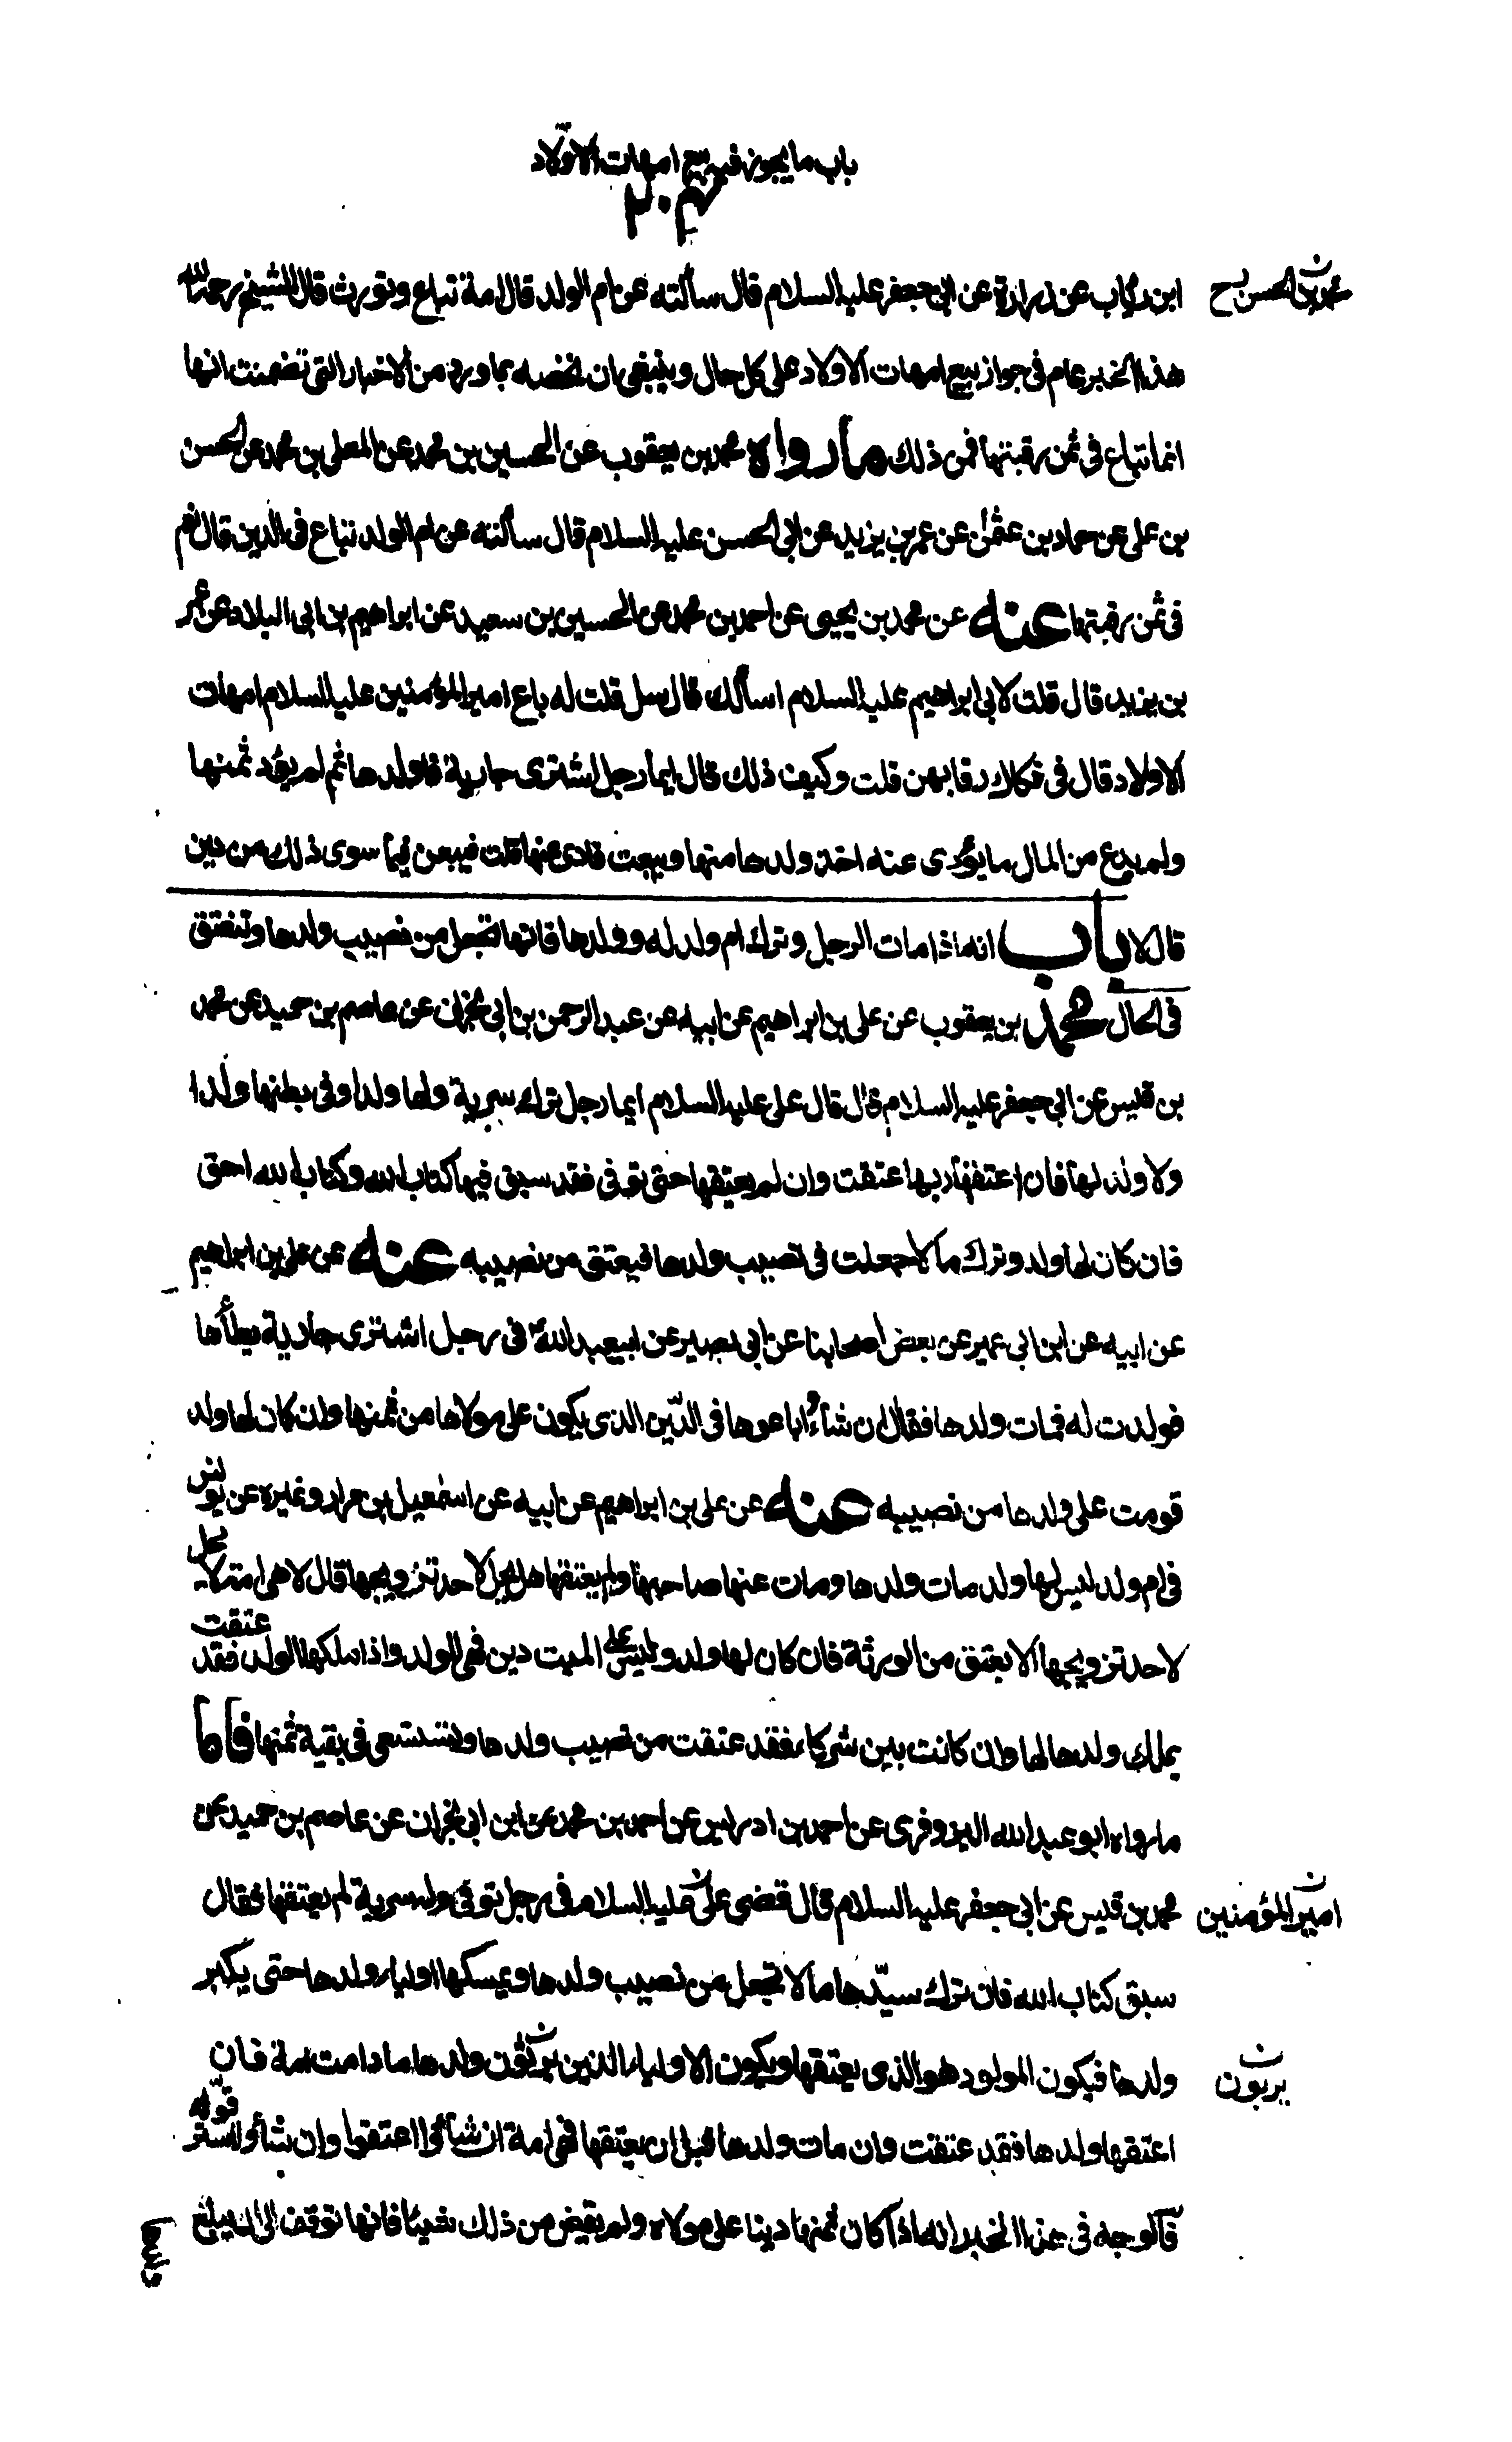 باب ما يجوز فيه بيع امهات الاولاد
ابن رئاب عن زرارة عن ابى جعفر عليه السلام قال سألته عن ام الولد قال امة تباع وتورث قال الشيخ رحمه الله
محمد بن الحسن
هذا الخبر عام فى جواز بيع امهات الاولاد على كل حال وينبغى ان نخصه بما ورد من الاخبار التى تضمنت انها
انما تباع فى ثمن رقبتها فمن ذلك ما رواه محمد بن يعقوب عن الحسين بن محمد عن المعلى بن محمد عن الحسن
بن على عن حماد بن عثمن عن عمر بن يزيد عن ابى الحسن عليه السلام قال سألته عن ام الولد تباع فى الدين قال نعم
فى ثمن رقبتها عنه عن محمد بن يحيى عن احمد بن محمد عن الحسين بن سعيد عن ابراهيم بن ابى البلاد عن عمر
بن يزيد قال قلت لابى ابراهيم عليه السلام اسألك قال سل قلت له باع امير المؤمنين عليه السلام امهات
الاولاد قال فى فكاك رقابهن قلت وكيف ذلك قال ايما رجل اشترى جارية فاولدها ثم لم يؤد ثمنها
ولم يدع من المال ما يؤدى عنه اخذ ولدها منها وبيعت فادى عنها قلت فيبعن فيما سوى ذلك من دين
قال لا باب انه اذا مات الرجل وترك ام ولد له وولدها فانها تجعل من نصيب ولدها وتنعتق
فى الحال محمد بن يعقوب عن على بن ابراهيم عن ابيه عن عبد الرحمن بن ابى نجران عن عاصم بن حميد عن محمد
بن قيس عن ابى جعفر عليه السلام قال قال على عليه السلام ايما رجل ترك سرية ولها ولد او فى بطنها ولد ا
ولا ولد لها فان اعتقها ربها عتقت وان لم يعتقها حتى توفى فقد سبق فيها كتاب الله وكتاب الله احق
فان كان لها ولد وترك مالا جعلت فى نصيب ولدها فيعتق من نصيبه عنه عن على بن ابراهيم
عن ابيه عن ابن ابى عمير عن بعض اصحابنا عن ابى بصير عن ابيعبد الله فى رجل اشترى جارية يطأها
فولدت له فمات ولدها فقال ان شاءوا باعوها فى الدين الذى يكون على مولاها من ثمنها وان كان لها ولد
قومت على ولدها من نصيبه عنه عن على بن ابراهيم عن ابيه عن اسمعيل بن مرار وغيره عن يونس
فى ام ولد ليس لها ولد مات ولدها ومات عنها صاحبها ولم يعتقها هل يحل لاحد تزويجها قال لا هى امة لا يحل
لاحد تزويجها الا بعتق من الورثة فان كان لها ولد وليس على الميت دين فهى للولد واذا ملكها الولد فقد عتقت
بملك ولدها لها وان كانت بين شركاء فقد عتقت من نصيب ولدها وتستسعى فى بقية ثمنها فاما
ما رواه ابو عبد الله البزوفرى عن احمد بن ادريس عن احمد بن محمد عن ابن ابى نجران عن عاصم بن حميد عن
محمد بن قيس عن ابى جعفر عليه السلام قال قضى على عليه السلام فى رجل توفى وله سرية لم يعتقها فقال
امير المؤمنين
سبق كتاب الله فان ترك سيدها مالا تجعل من نصيب ولدها ويمسكها اولياء ولدها حتى يكبر
ولدها فيكون المولود هو الذى يعتقها ويكون الاولياء الذين يرثون ولدها ما دامت امة فان
يربون
اعتقها ولدها فقد عتقت وان مات ولدها قبل ان يعتقها فهى امة ان شاؤا اعتقوا وان شاؤا استرقوا
فالوجه فى هذا الخبر انه اذا كان ثمنها دينا على مولاه ولم يقض من ذلك شيئا فانها توقف الى ان يبلغ